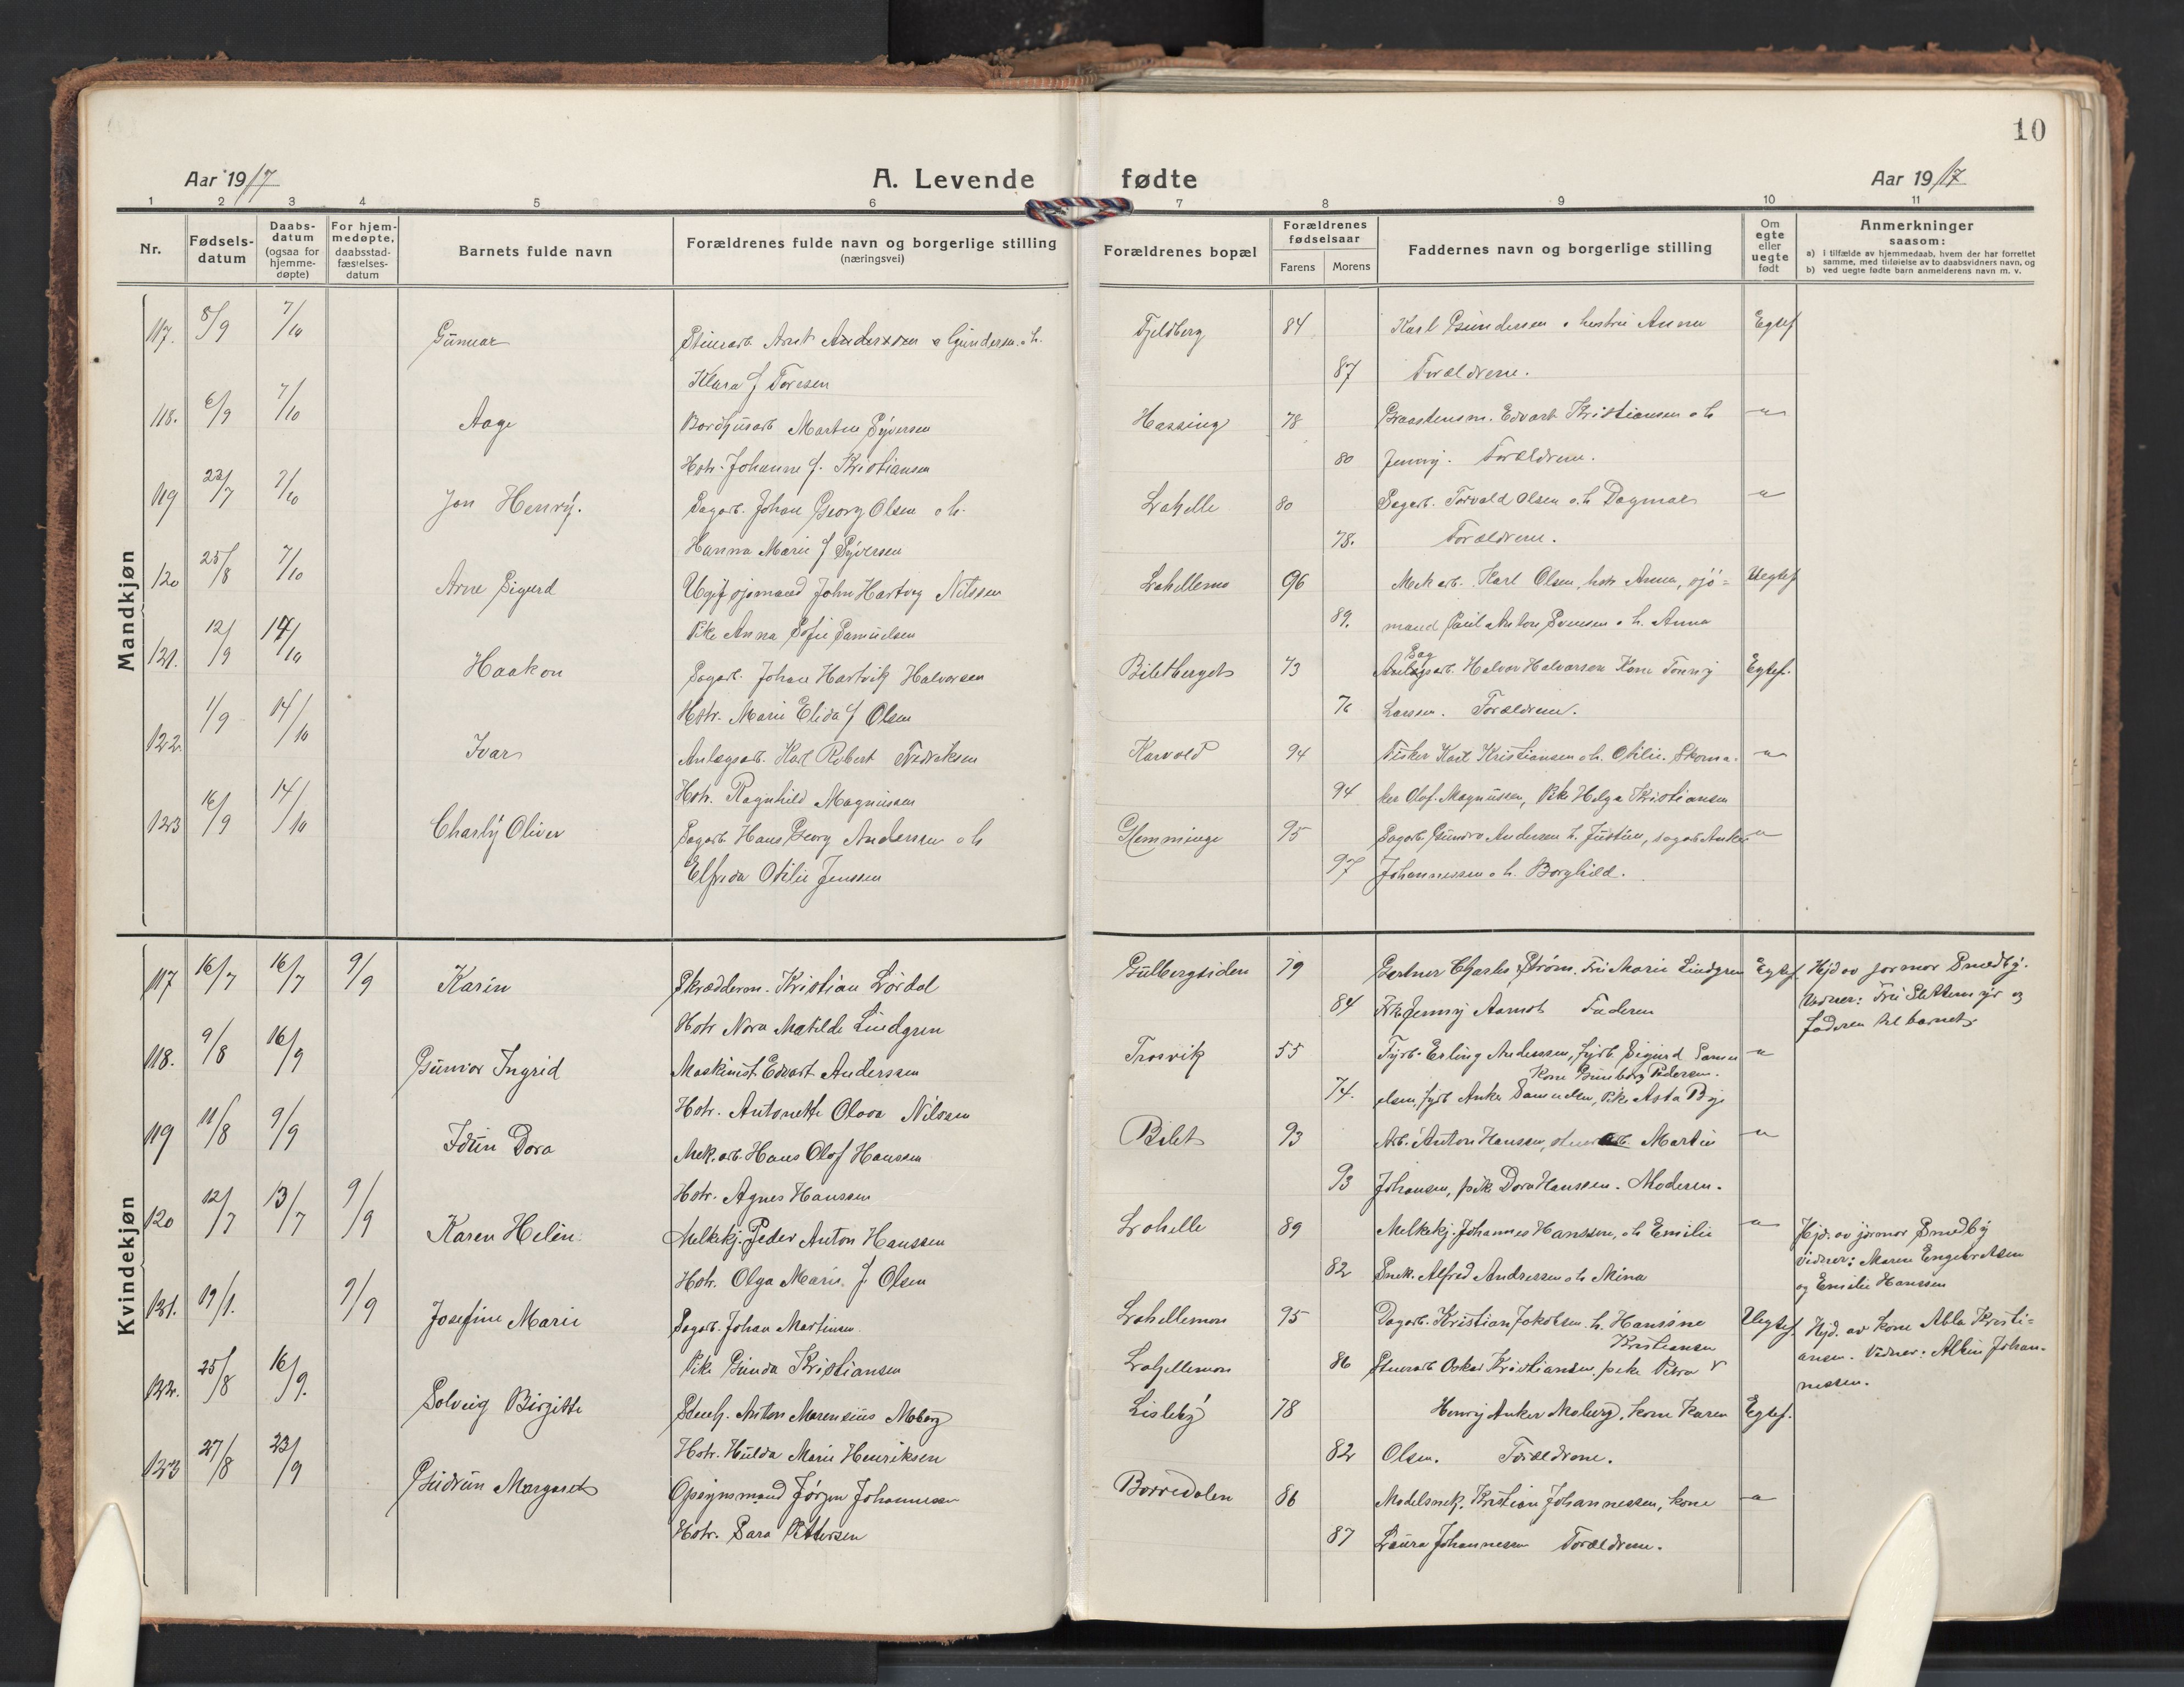 10
Aar 1917
A. Levende fødte
Aar 1917
1 2 3 4 5 6 7 8 9 10 11
Nr.
Fødsels-
datum
Daabs-
datum
(ogsaa for
hjemme-
døpte)
For hjem-
medøpte,
daabsstad-
fæstelses-
datum
Barnets fulde navn
Forældrenes fulde navn og borgerlige stilling
(næringsvei)
Forældrenes bopæl
Forældrenes
fødselsaar
Farens Morens
Faddernes navn og borgerlige stilling
Om
egte
eller
uegte
født
Anmerkninger
saasom:
a) i tilfælde av hjemmedaab, hvem der har forrettet
samme, med tilføielse av to daabsvidners navn, og
b) ved uegte fødte barn anmelderens navn m. v.
Mandkjøn
117. 8/9 7/10 Gunnar Stenarb. Arnt Anderssen Gundersen. h. Fjeldberg 84 Karl Gundersen hustru Anna Egtef
Klara f Toresen 87 Forældrene.
118. 6/9 7/10 Aage Bordhusarb Martin Syversen Hassing 78 Graastensm. Edvart Kristiansen o h -"-
Hstr. Johanne f. Kristiansen 80 Jenny. Forældrene.
119 23/7 7/10 Jon Henry. Dagarb. Johan Georg Olsen o h. Lahelle 80 Sagarb. Torvald Olsen o. h Dagmar -"-
Hanna Marie f Syversen 78. Forældrene.
120 25/8 7/10 Arne Sigurd Ugif sjømand John Hartvig Nilssen Lahellemo 96 Mek arb. Karl Olsen, hstr Anna, sjø- Uegtef
Pike Anna Sofie Samuelsen 89. mand Paul Anton Svensen o h. Anna
121. 12/9 14/10 Haakon Sagarb. Johan Hartvik Halvorsen Biletberget 73 Sagarb. Halvor Halvorsen Kone Tonny Egtef.
Hstr. Marie Elida f Olsen 76 Larsen. Forældrene.
122. 1/9 14/10 Ivar Anlægsarb. Karl Robert Fredriksen Karvold 94 Fisker Karl Kristiansen o h. Otilie. Skoma- -"-
Hstr. Ragnhild Magnussen 94 ker Olof. Magnussen, Pike Helga Kristiansen
123 16/9 14/10 Charly Oliver Sagarb. Hans Georg Andersen o h Glemminge 95 Sagarb. Andersen h. Justine, sagarb Anker -"-
Elfrida Otilie Jenssen 97 Johannessen o h. Borghild.
Kvindekjøn
117 16/7 16/7 9/9 Karin Skrædderm. Kristian Lørdal Gulbergsiden 79 Gartner Charles Strøm. Fru Marie Lindgren Egtef. Hjd av jormor Smedby.
Hstr Nora Matilde Lindgren 84 Frk Jenny Aamot Faderen Vidner: Fru Slettemyr og
faderen til barnet
118. 9/8 16/9 Gunvor Ingrid Maskinist Edvart Anderssen Trosvik 55 Fyrb. Erling Anderssen, fyrb. Sigurd Samu- -"-
Kone Gunborg Pedersen.
Hstr. Antonette Olava Nilssen 74. elsen, fyrb Anker Samuelsen, Pike Asta Bye
119 11/8 9/9 Idun Dora Mek. arb. Hans Olof Hanssen Bilet 93 Arb. Anton Hanssen, stenarb. Martin -"-
Hstr. Agnes Hanssen 93 Johansen, pike Dora Hanssen. Moderen.
120 12/7 13/7 9/9 Karen Helene Melkekj. Peder Anton Hanssen Lahelle 89 Melkekj. Johannes Hanssen, o h Emilie -"- Hjd. av jormor Smedby
Hstr. Olga Marie f Olsen 82 Snek. Alfred Andressen o h Mina Vidner: Maren Engebretsen
og Emilie Hanssen
121. 19/1. 9/9 Josefine Marie Sagarb. Johan Martinsen Lahellemon 95 Dagarb. Kristian Jakobsen. h. Hansine Uegtef. Hjd. av kone Abla Kristi-
Kristiansen
Pike Gunda Kristiansen Lahellemon 86 Stenarb Oskar Kristiansen, pike Petra ansen. Vidner: Albin Johan-
nessen.
122. 25/8 16/9. Solveig Birgitte Stenh. Anton Marensius Moberg Lisleby 78 Henry Anker Moberg, kone Karen Egtef.
Hstr. Hulda Marie Henriksen 82 Olsen. Forældrene.
123 27/8 23/9 Gudrun Margaret Opsynsmand Jørgen Johannessen Borredalen 86 Modelsnek. Kristian Johannessen, kone -"-
Hstr. Sara Pettersen 87 Laura Johannessen Forældrene.